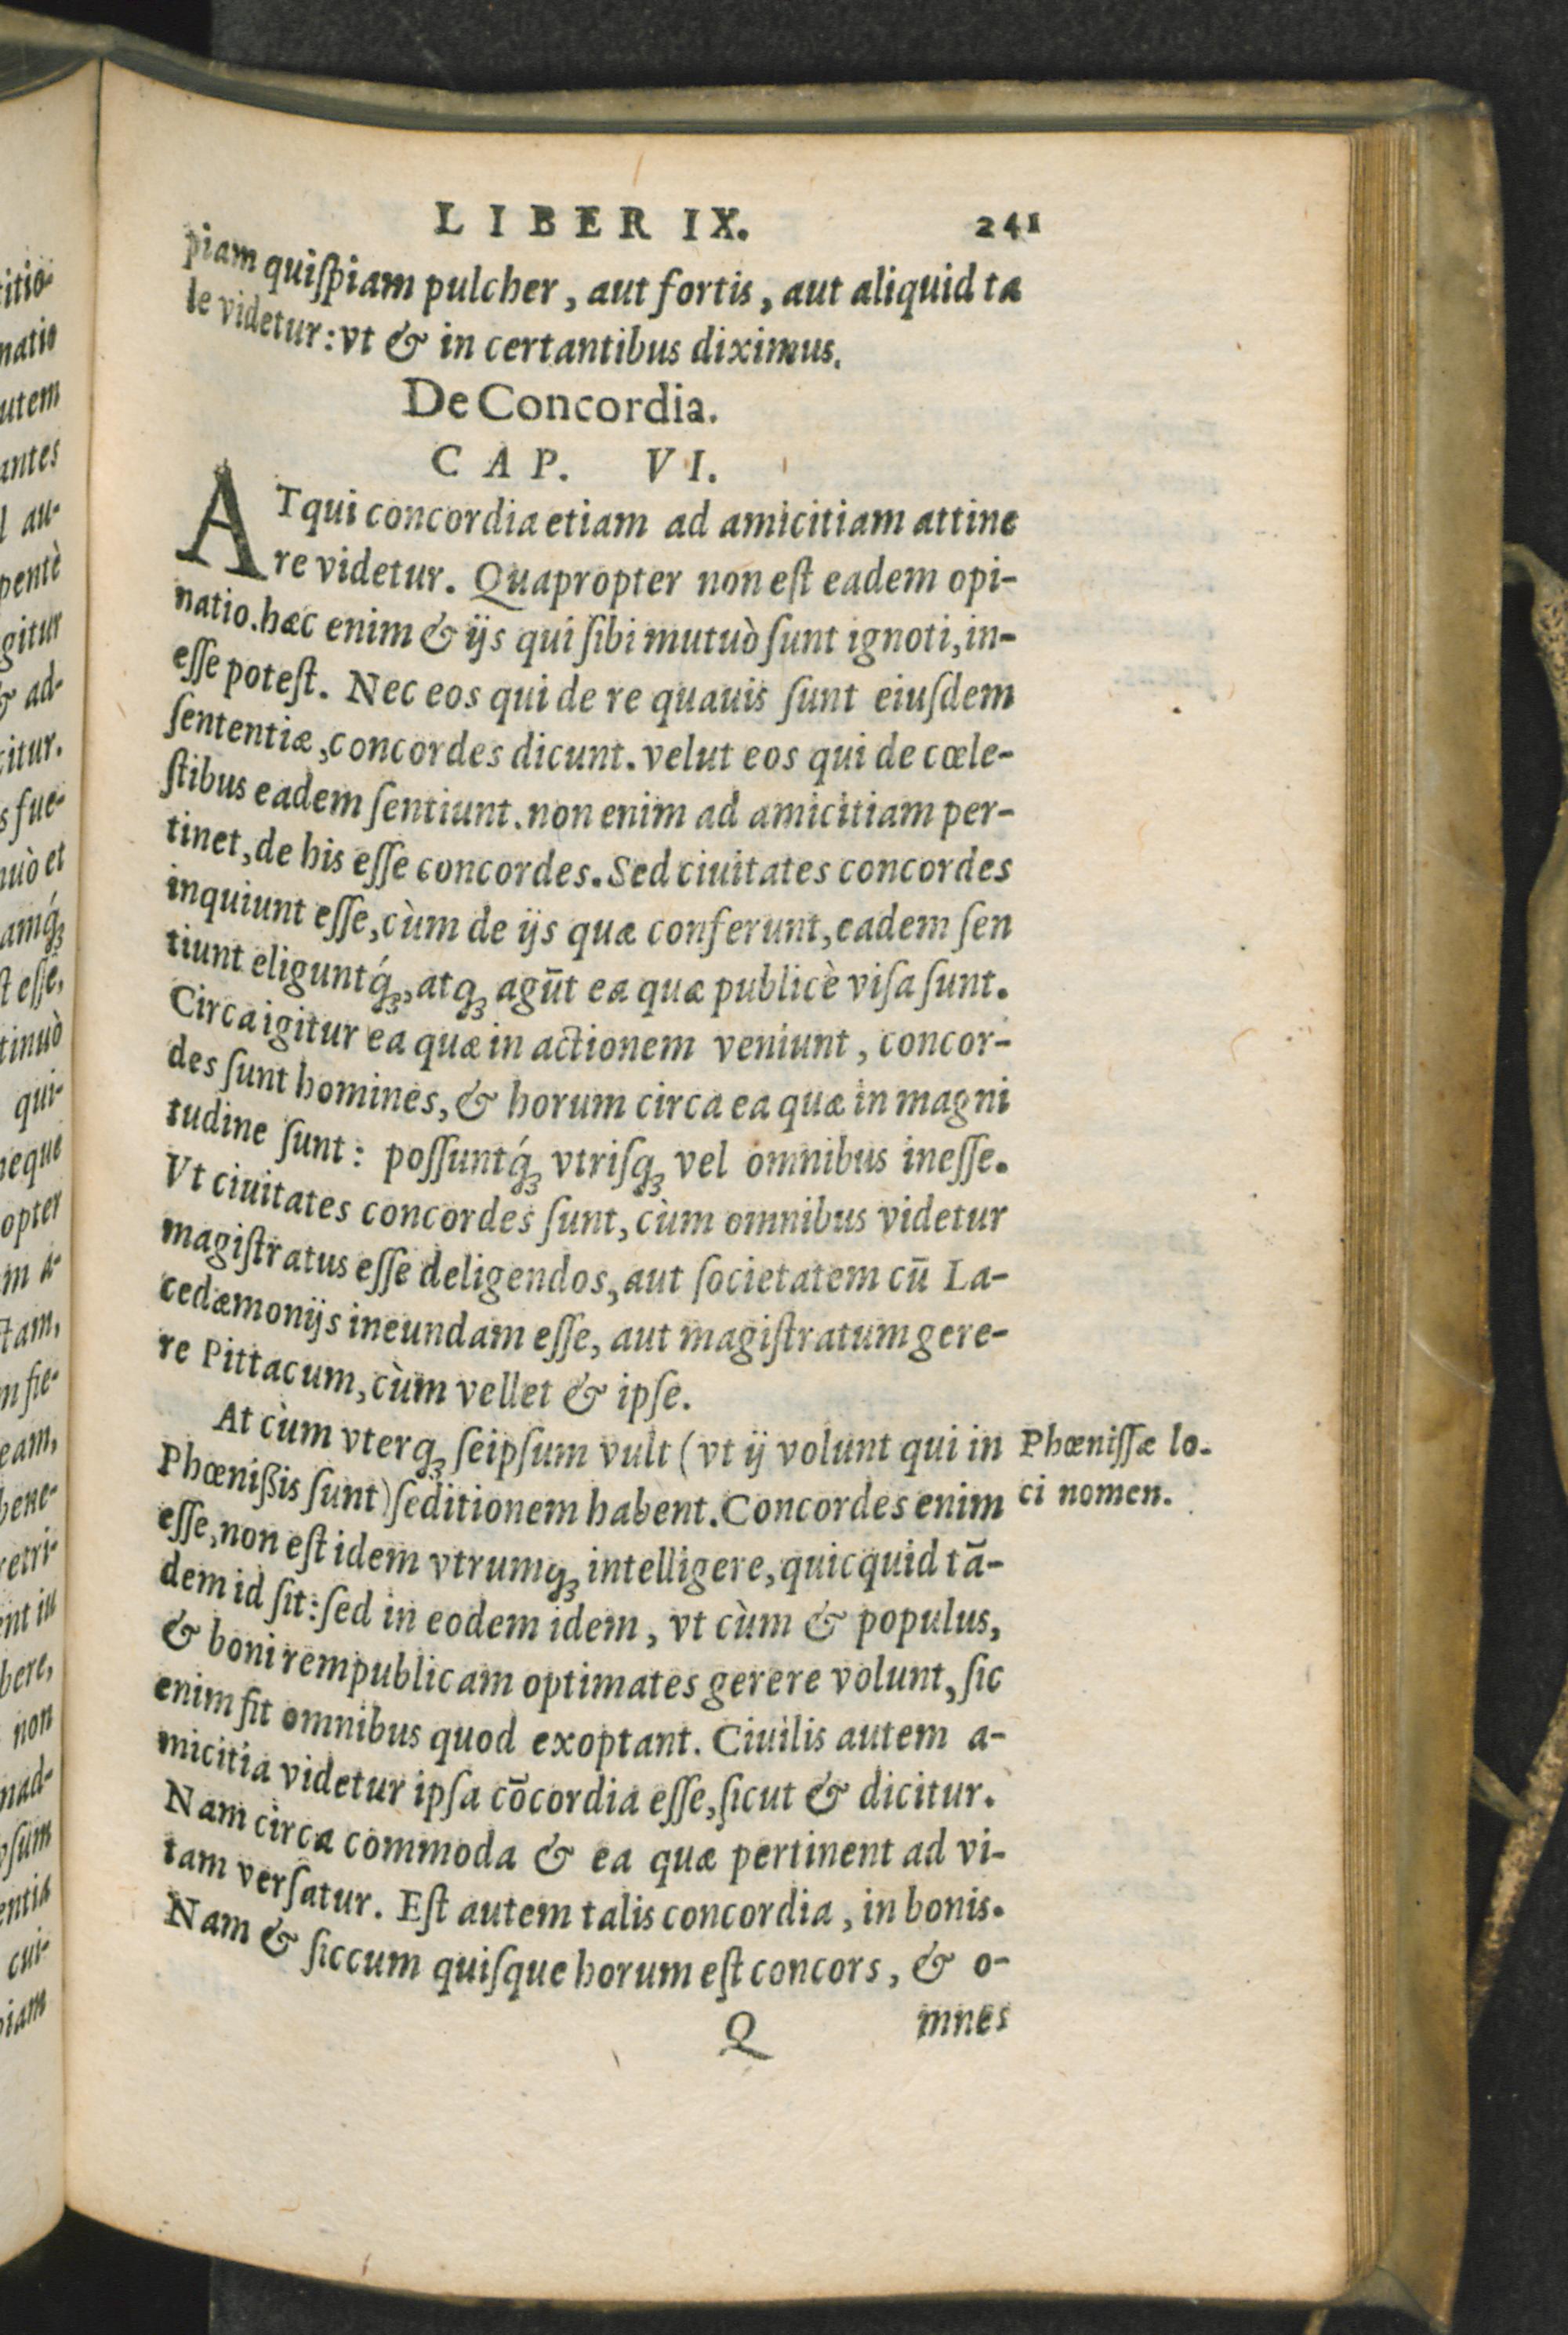 LIBER IX. 241
piam quiſpiam pulcher, aut fortis, aut aliquid ta
le videtur: vt & in certantibus diximus.
De Concordia.
CAP. VI.
ATqui concordia etiam ad amicitiam attine
re videtur. Quapropter non eſt eadem opi-
natio. hæc enim & ijs qui ſibi mutuò ſunt ignoti, in-
eſſe poteſt. Nec eos qui de re quauis ſunt eiuſdem
ſententiæ, concordes dicunt. velut eos qui de cœle-
ſtibus eadem ſentiunt. non enim ad amicitiam per-
tinet, de his eſſe concordes. Sed ciuitates concordes
inquiunt eſſe, cùm de ijs quæ conferunt, eadem ſen
tiunt eliguntq́ꝫ, atqꝫ agūt ea quæ publicè viſa ſunt.
Circa igitur ea quæ in actionem veniunt, concor-
des ſunt homines, & horum circa ea quæ in magni
tudine ſunt: poſſuntq́ꝫ vtriſqꝫ vel omnibus ineſſe.
Vt ciuitates concordes ſunt, cùm omnibus videtur
magiſtratus eſſe deligendos, aut ſocietatem cū La-
cedæmonijs ineundam eſſe, aut magiſtratum gere-
re Pittacum, cùm vellet & ipſe.
At cùm vterqꝫ ſeipſum vult (vt ij volunt qui in
Phœnißis ſunt) ſeditionem habent. Concordes enim
eſſe, non eſt idem vtrumqꝫ intelligere, quicquid tā-
dem id ſit: ſed in eodem idem, vt cùm & populus,
& boni rempublicam optimates gerere volunt, ſic
enim fit omnibus quod exoptant. Ciuilis autem a-
micitia videtur ipſa cōcordia eſſe, ſicut & dicitur.
Nam circa commoda & ea quæ pertinent ad vi-
tam verſatur. Eſt autem talis concordia, in bonis.
Nam & ſiccum quiſque horum eſt concors, & o-
Q mnes
Phœniſſæ lo-
ci nomen.